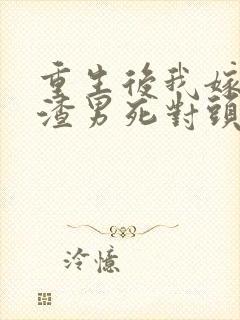 重生後我嫁
渣男死對頭
冷憶